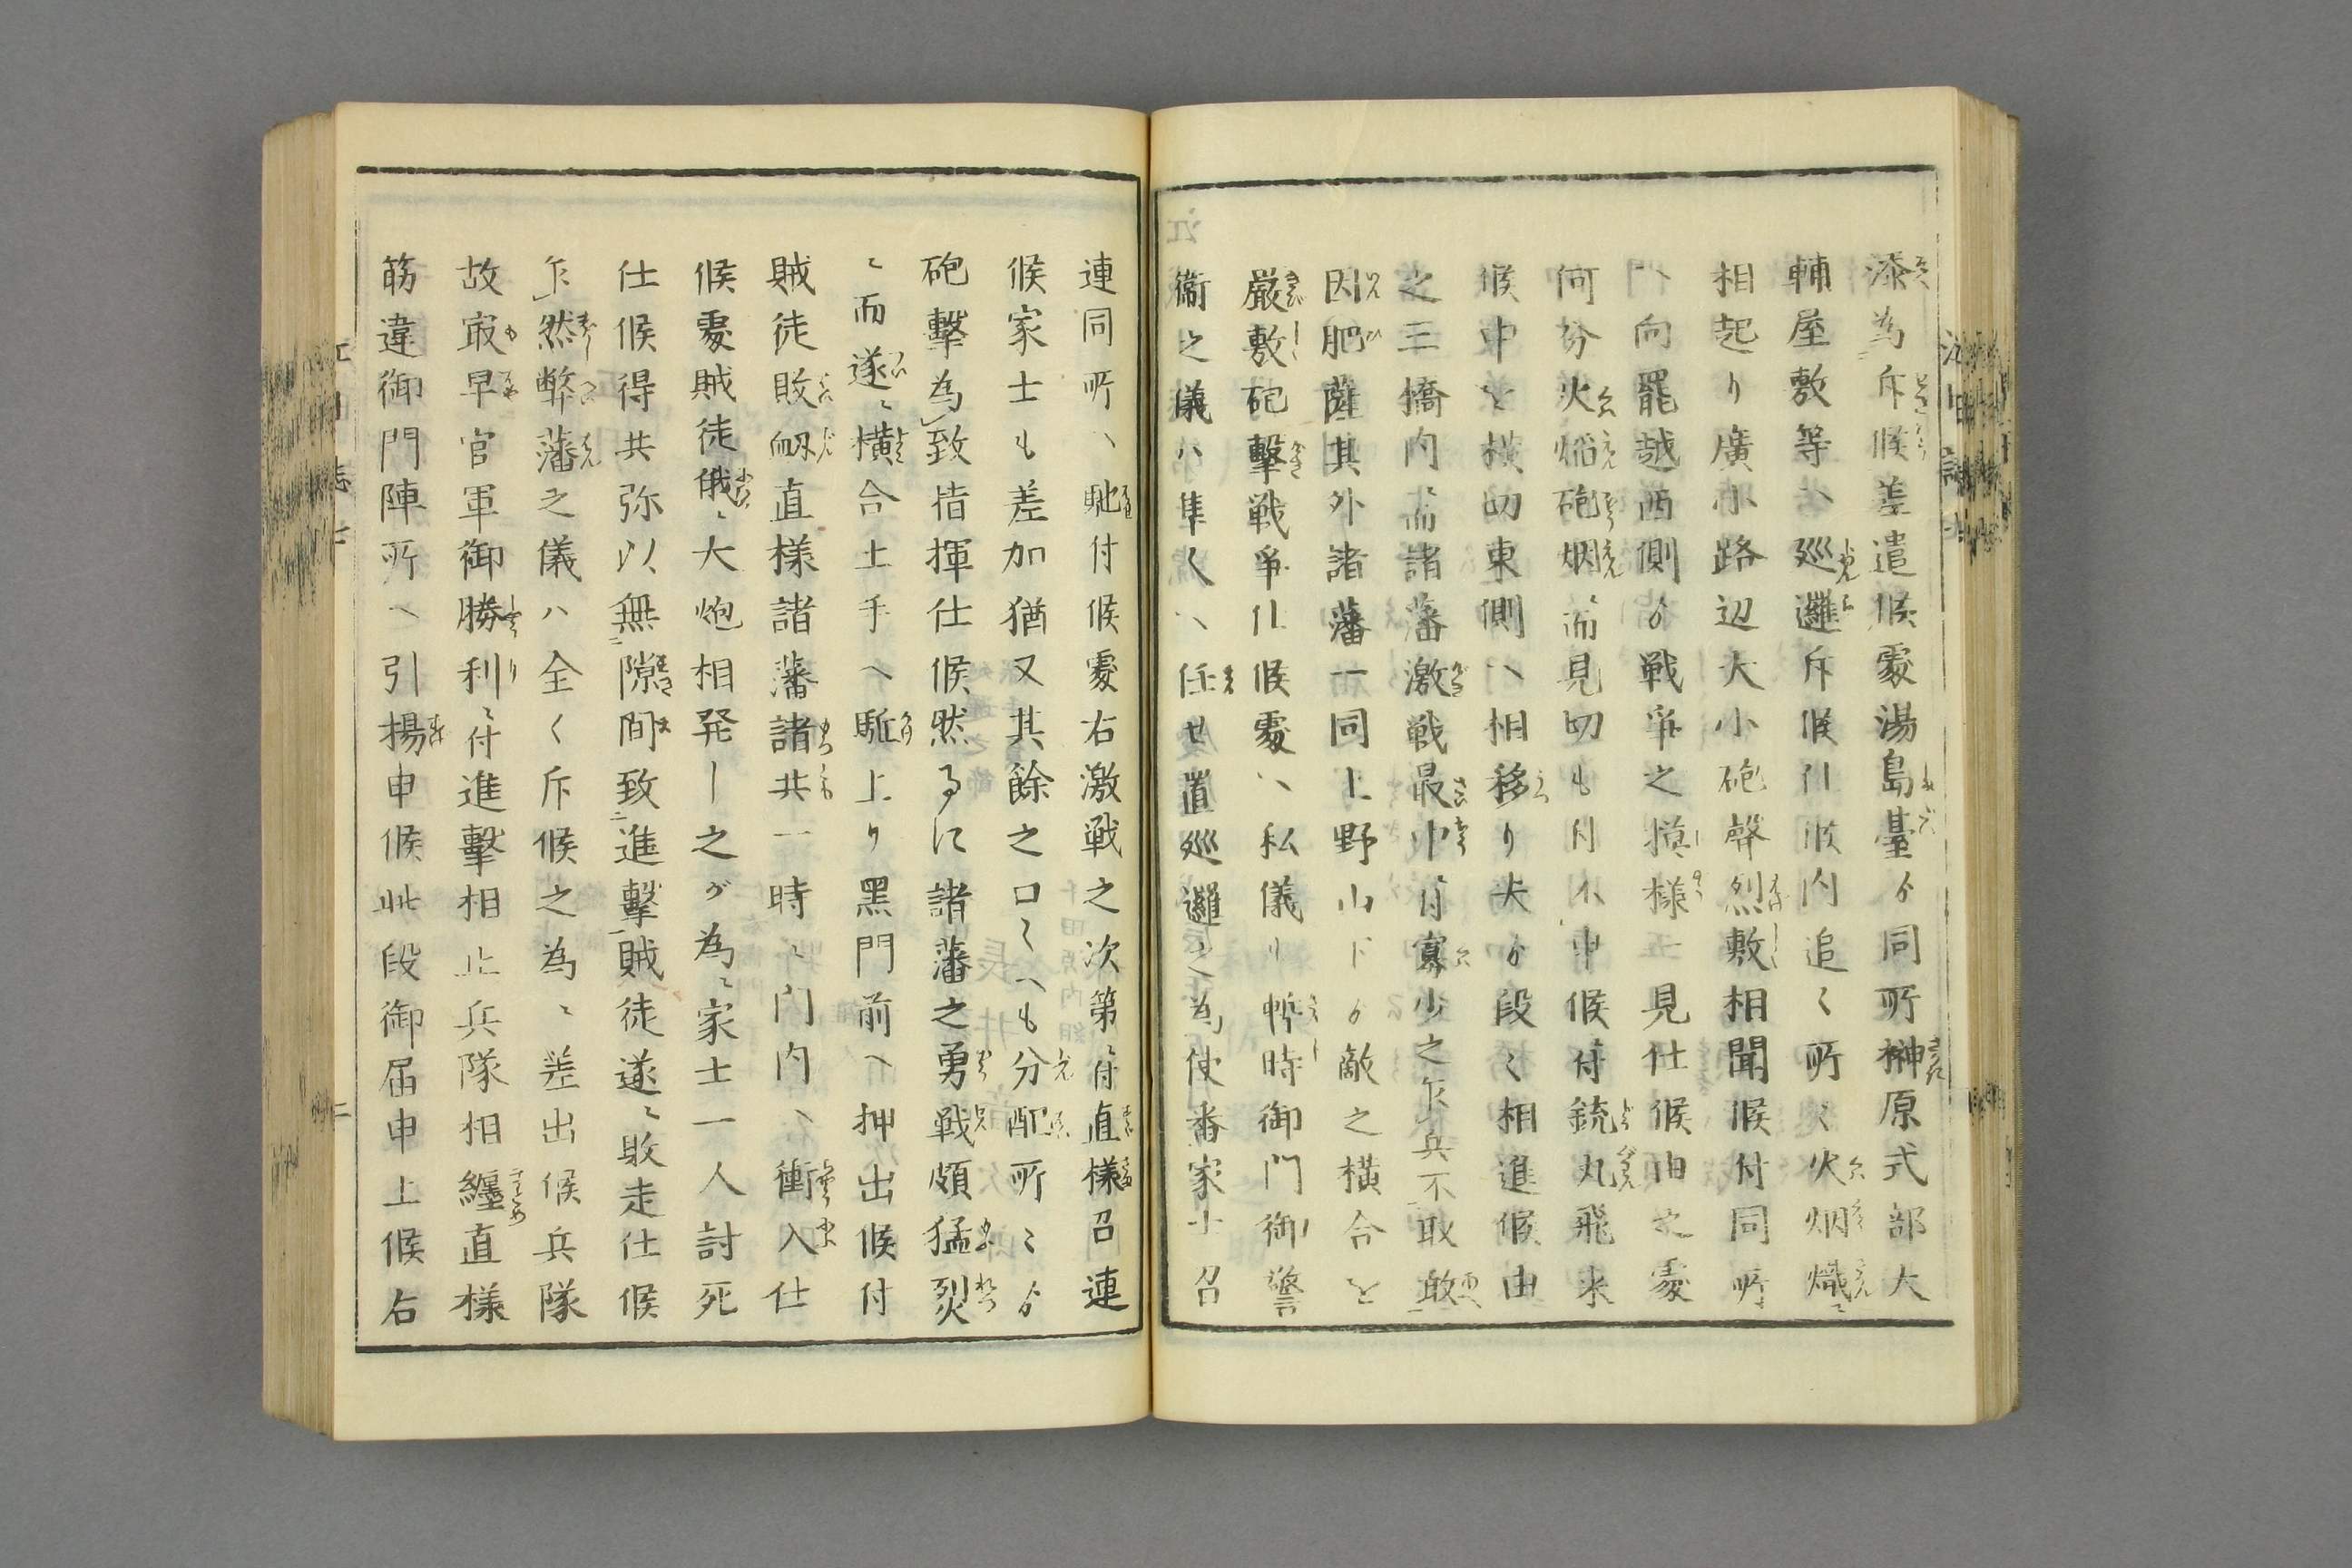 添為斥候差遣候處湯島臺ゟ同所榊原式部大
輔屋敷等へ巡邏斥候引候内追〻所〻火烟熾ニ
相起り廣小路辺大小砲聲烈敷相聞候付同所
へ向罷越西側ゟ戦争之模様モ見仕候由之處
何分火焔砲烟ニ而見切も付不申候ニ付銃丸飛来
候中を横切東側へ相移り夫ゟ段〻相進候由
之三橋内ニ而諸藩激戦最中ニ付寡少之兵不取敢
因肥薩其外諸藩一同上野山下ゟ敵之横合を
厳敷砲撃戦争仕候處、私儀ハ暫時御門御警
衞之儀ハ隼人へ任せ置巡邏之為使番家士召
連同所へ馳付候處右激戦之次第ニ付直様召連
候家士も差加猶又其餘之口〻へも分配所〻ゟ
砲撃為致指揮仕候然るに諸藩之勇戦頗猛烈
ニ而遂ニ横合土手へ駈上り黒門前へ押出候付
賊徒敗衂直様諸藩諸共一時ニ門内へ衝入仕
候處賊徒俄ニ大炮相発し之が為ニ家士一人討死
仕候得共弥以無隙間致進撃賊徒遂ニ敗走仕候
乍然弊藩之儀ハ全く斥候之為ニ差出候兵隊
故㝡早官軍御勝利ニ付進撃相止兵隊相纏直様
筋違御門陣所へ引揚申候此段御届申上候右